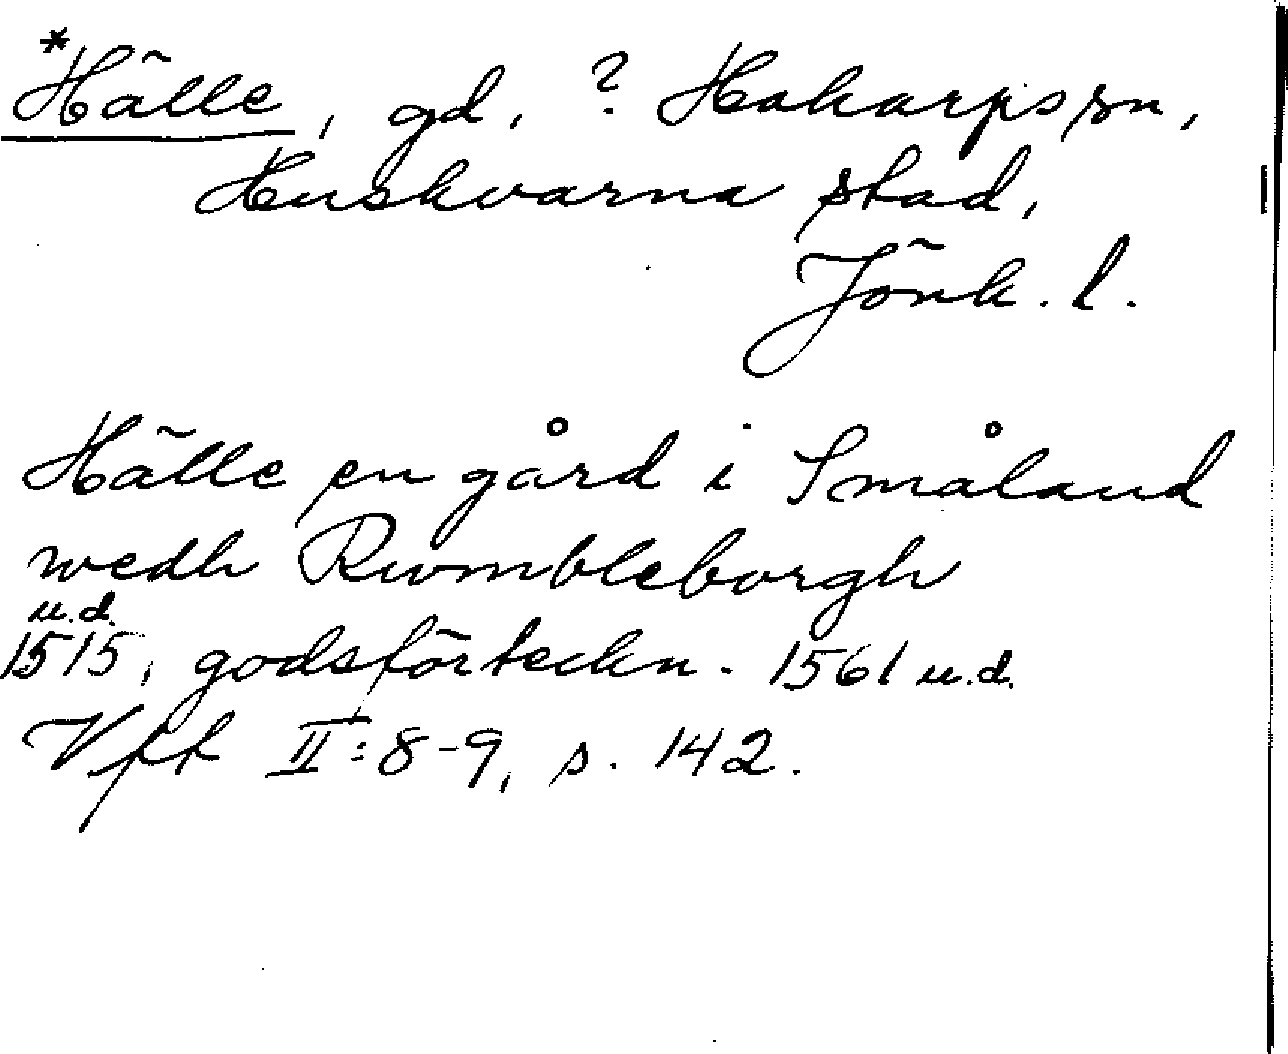 *Hälle, gd, ? Hakarps sn,
Huskvarna stad,
Jönk. l.
Hälle en gård i Småland
wedh Rwmbleborgh
u.d.
1515, godsförteckn. 1561 u.d.
Vft II:8-9, s. 142.